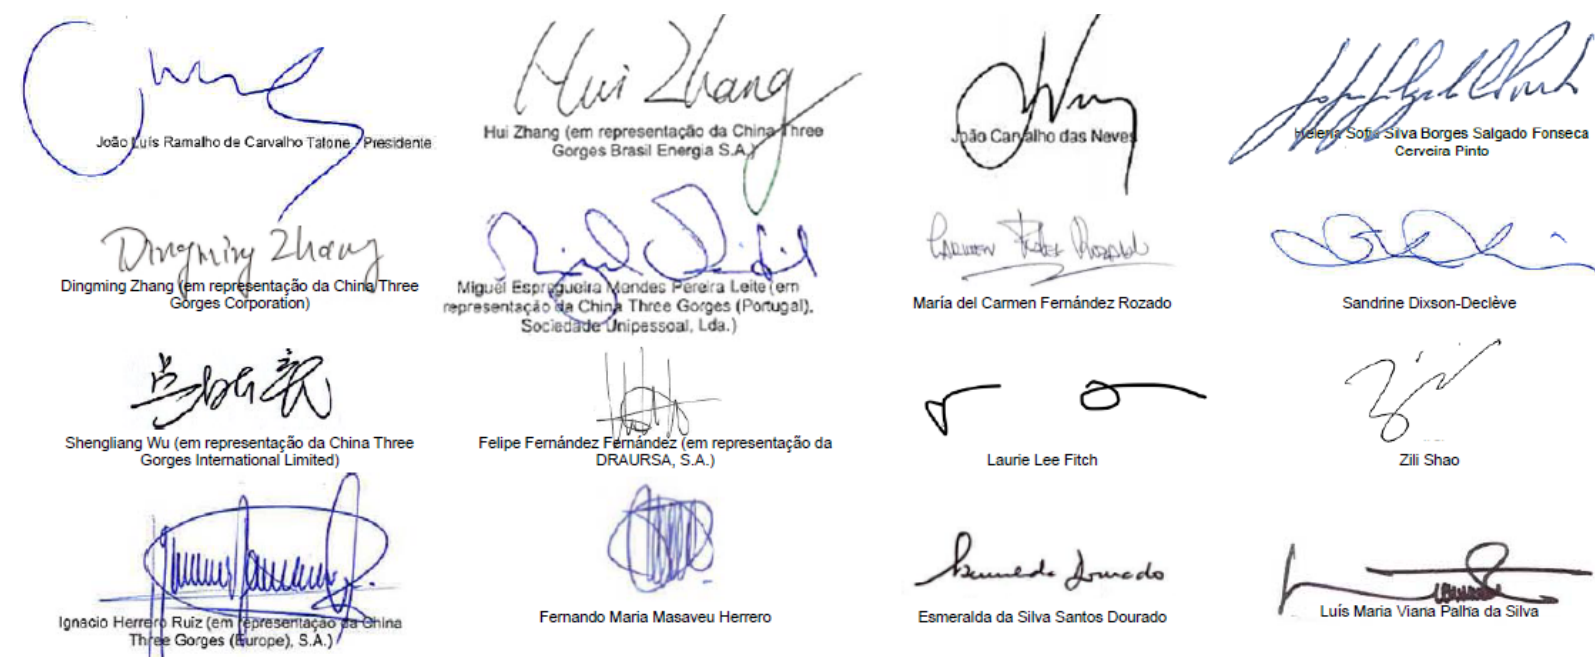 João Luís Ramalho de Carvalho Talone - Presidente
Hui Zhang
Hui Zhang (em representação da China Three
Gorges Brasil Energia S.A.)
João Carvalho das Neves
Helena Sofia Silva Borges Salgado Fonseca
Cerveira Pinto
Dingming Zhang
Dingming Zhang (em representação da China Three
Gorges Corporation)
Miguel Espregueira Mendes Pereira Leite (em
representação da China Three Gorges (Portugal),
Sociedade Unipessoal, Lda.)
María del Carmen Fernández Rozado
Sandrine Dixson-Declève
Shengliang Wu (em representação da China Three
Gorges International Limited)
Felipe Fernández Fernández (em representação da
DRAURSA, S.A.)
Laurie Lee Fitch
Zili Shao
Ignacio Herrero Ruiz (em representação da China
Three Gorges (Europe), S.A.)
Fernando Maria Masaveu Herrero
Esmeralda da Silva Santos Dourado
Luís Maria Viana Palha da Silva